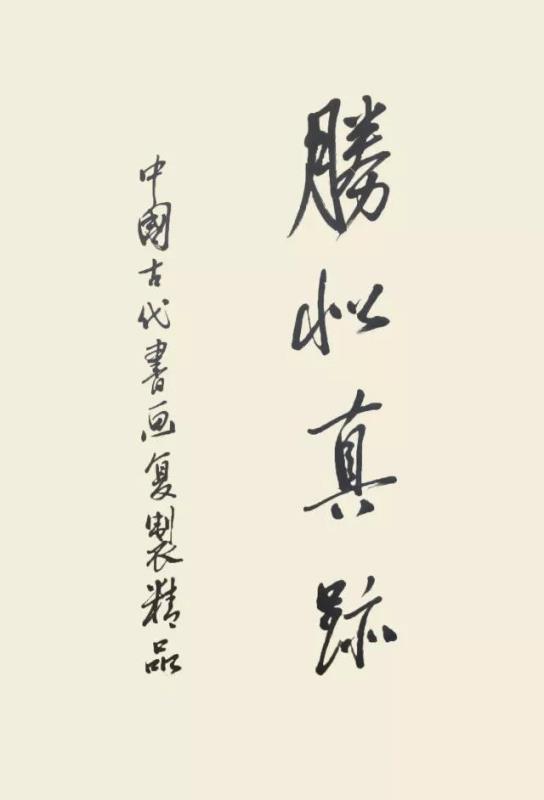 勝似真跡
中國古代書画复製精品